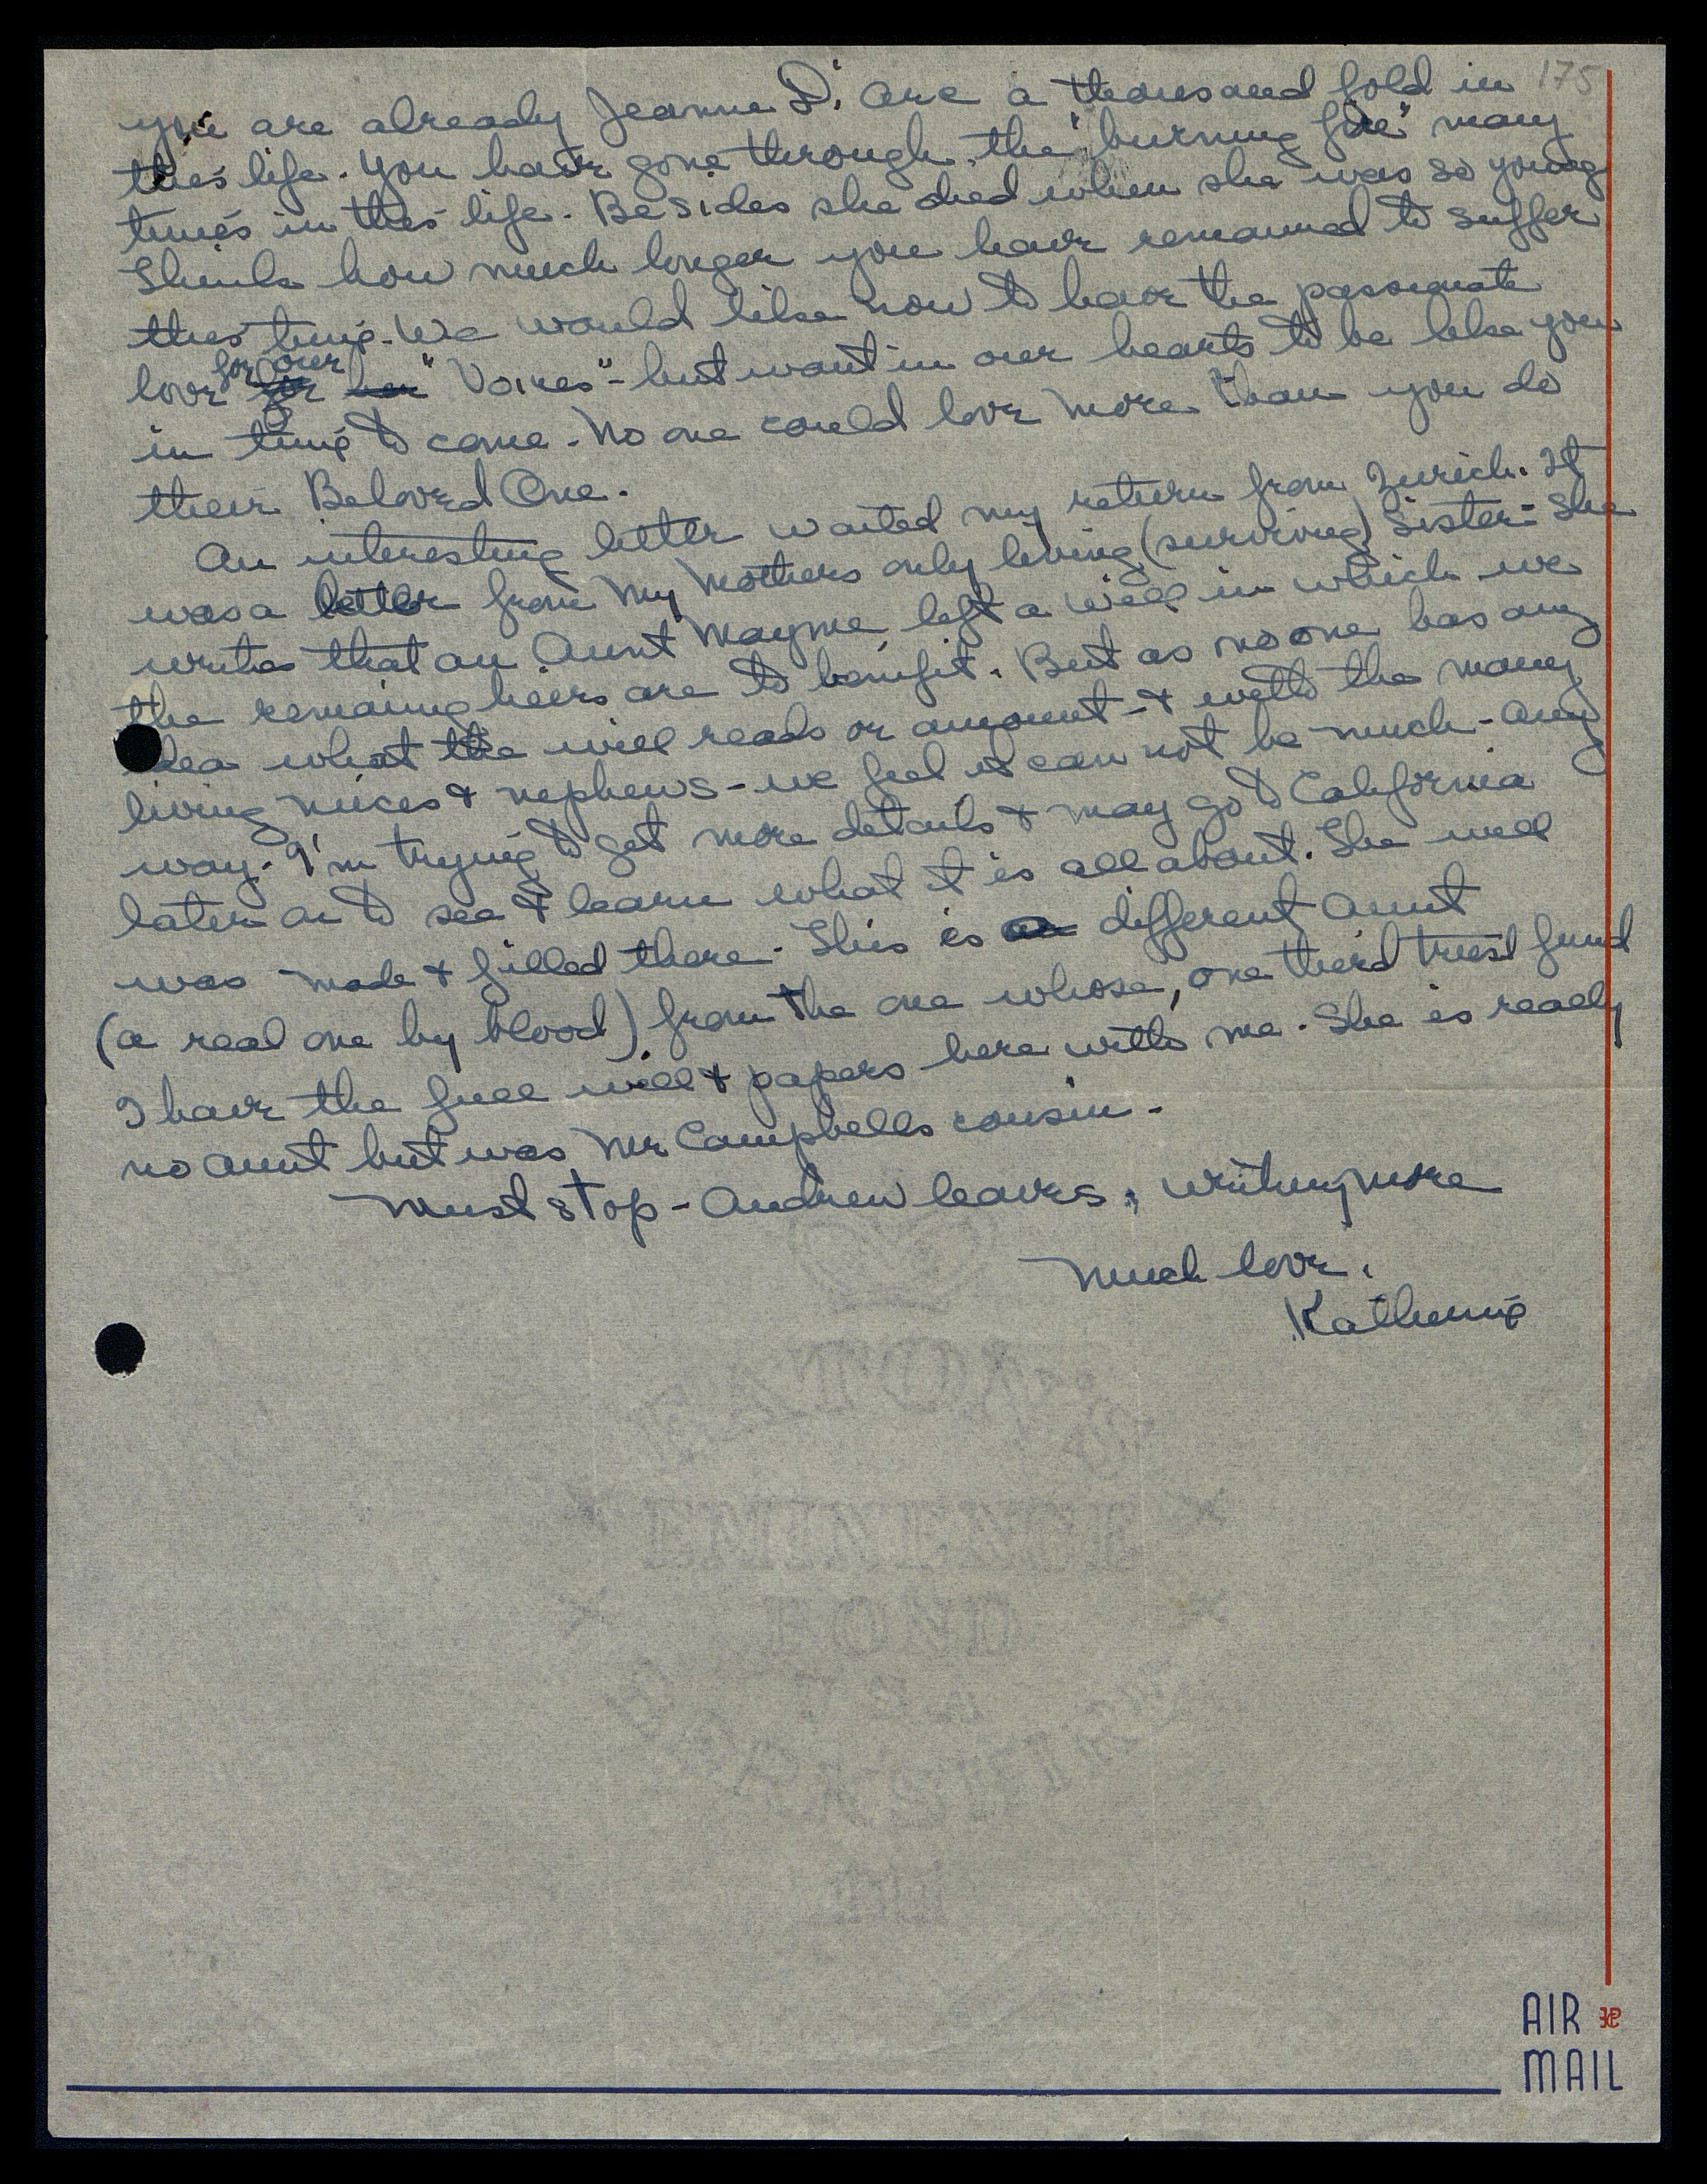 175
you are already Jeanne D'Arc a thousand fold in
this life. You have gone through the "burning fire" many
times in this life. Besides she died when she was so young
Think how much longer you have remained to suffer
this time. We would like now to have the passionate
love for our "Voices" - but want in our hearts to be like you
in time to come. No one could love more than you do
their Beloved One.
An interesting letter waited my return from Zurich. It
was a letter from my Mothers only living (surviving) Sister - She
writes that an Aunt Mayme left a will in which we
the remaing heirs are to benifit. But as no one has any
idea what the will reads or amount - & with the many
living nieces & nephews - we feel it can not be much - any
way. I'm trying to get more details & may go to California
later on to see & learn what it is all about. The will
was made & filled there. This is a different Aunt
(a real one by blood) from the one whose, one third trust fund
I have the full will & papers here with me. She is really
no aunt but was Mr Campbells cousin -
Must stop - Andrew leaves, writing more
Much love,
Katherine
AIR
MAIL